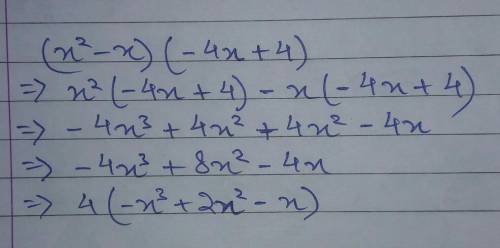 (x² - x) (-4x + 4)
⇒ x² (-4x + 4) - x (-4x + 4)
⇒ -4x³ + 4x² + 4x² - 4x
⇒ -4x³ + 8x² - 4x
⇒ 4 (-x³ + 2x² - x)